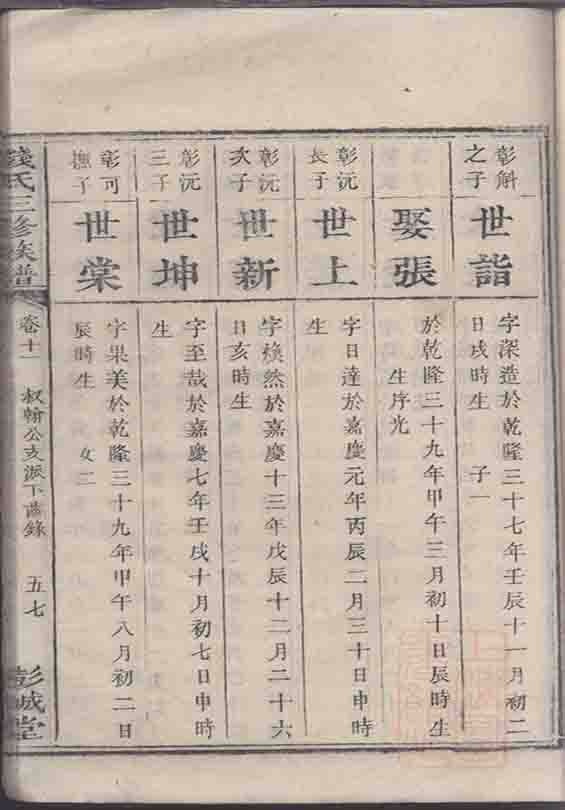 彰斛
之子
世詣
字深造於乾隆三十七年壬辰十一月初二
日戌時生 子一
娶張
於乾隆三十九年甲午三月初十日辰時生
生序光
彰沅
長子
世上
字日達於嘉慶元年丙辰二月三十日申時
生
彰沅
次子
世新
字煥然於嘉慶十三年戊辰十二月二十六
日亥時生
彰沅
三子
世坤
字至哉於嘉慶七年壬戌十月初七日申時
生
彰可
撫子
世棠
字果美於乾隆三十九年甲午八月初二日
辰時生 女二
錢氏三修族譜
卷十一
叙翰公支派下齒錄
五七
彭城堂